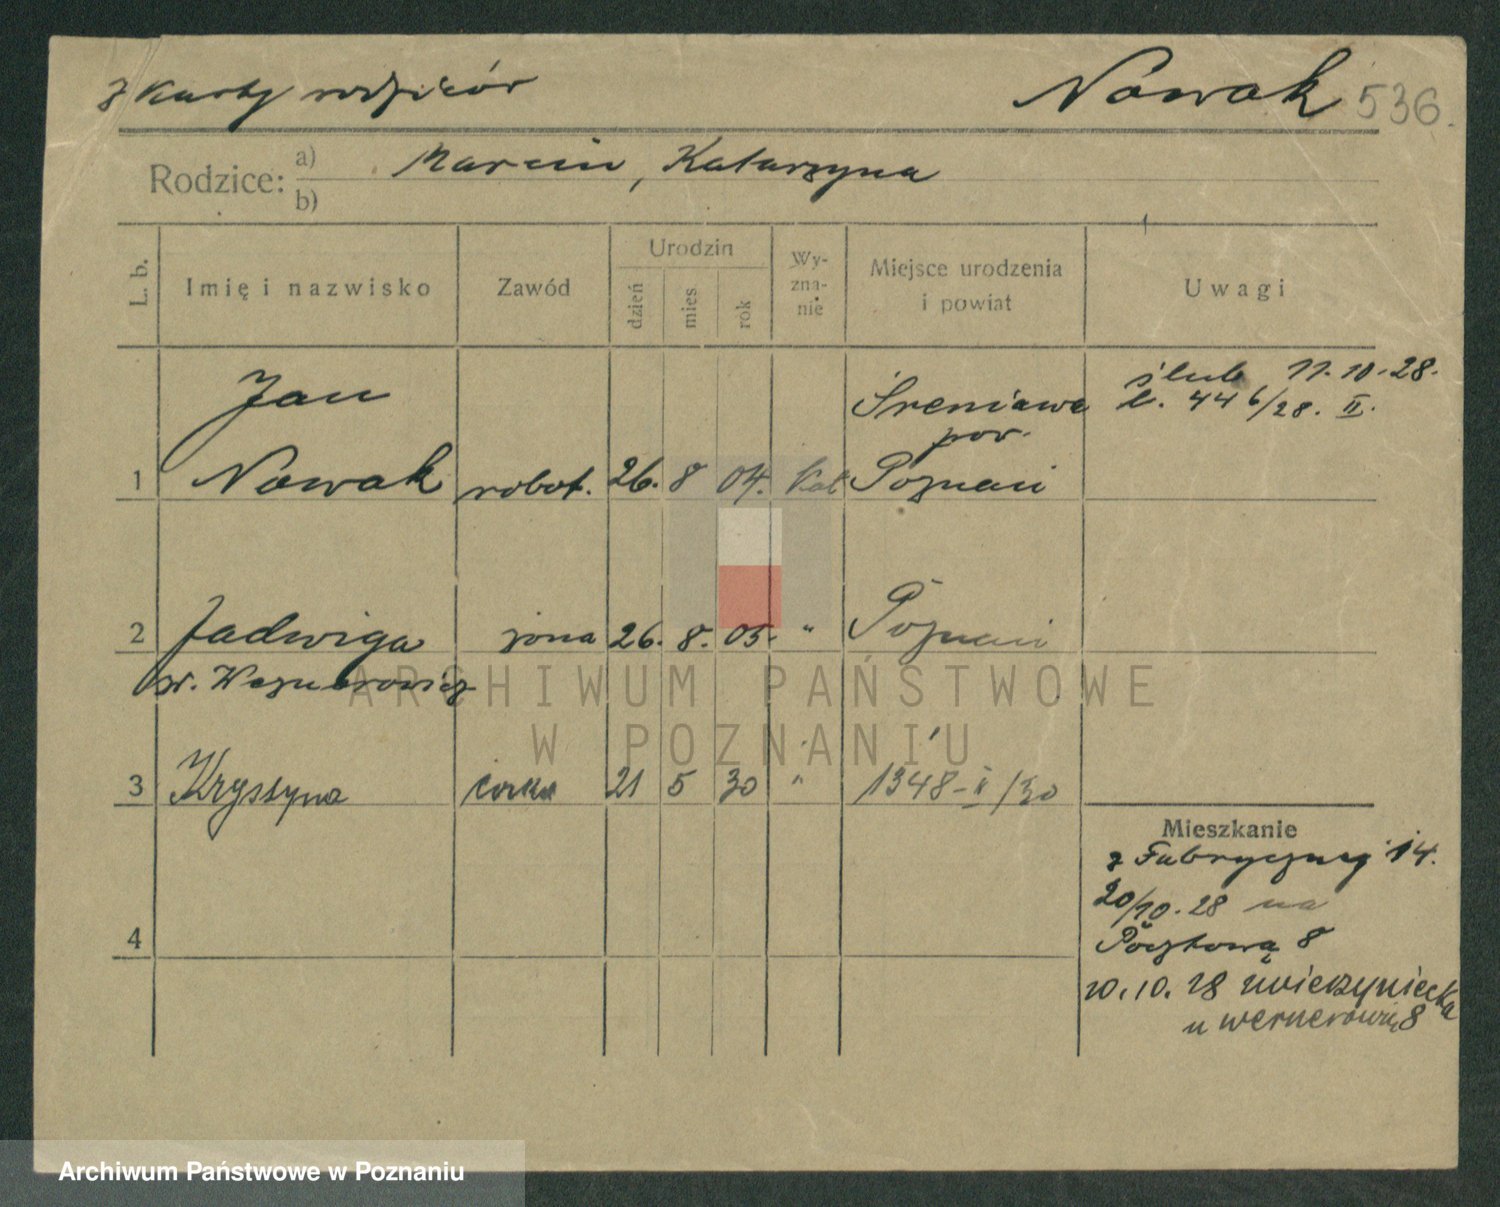 z karty rodziców
Nowak 536.
Rodzice: a) Marcin, Katarzyna
b)
L. b. Imię i nazwisko Zawód Urodzin dzień mies rok Wy-zna-nie Miejsce urodzenia i powiat Uwagi
Jan
Śreniawa
pow.
ślub 11.10.28.
l. 446/28. II.
1 Nowak robot. 26. 8 04. Kat Poznań
2 Jadwiga żona 26. 8. 05. " Poznań
3 Krystyna córka 21 5 30 " 1348-II/30
4
Mieszkanie
z Fabrycznej 14.
20/10.28 na
Pocztową 8
20.10.28
8
ARCHIWUM PAŃSTWOWE
W POZNANIU
Archiwum Państwowe w Poznaniu